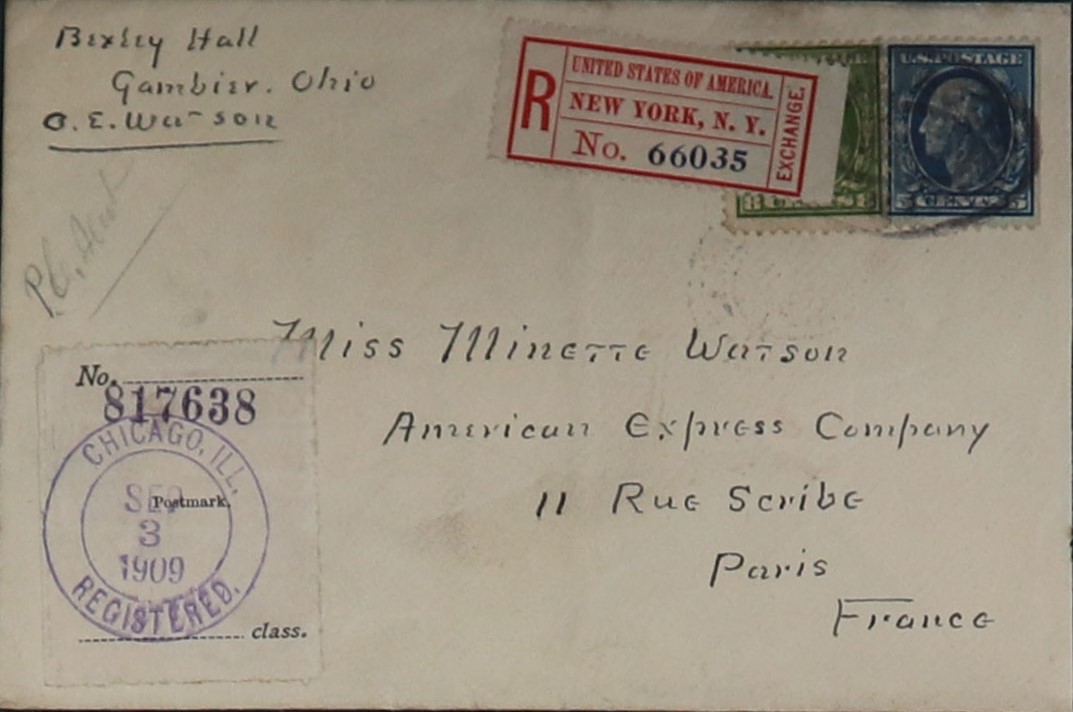 Bexley Hall
Gambier. Ohio
O. E. Watson
R
UNITED STATES OF AMERICA.
NEW YORK, N. Y.
No. 66035
EXCHANGE.
U.S. POSTAGE
8
8
5 CENTS 5
Miss Minette Watson
American Express Company
11 Rue Scribe
Paris
France
No.
817638
CHICAGO, ILL.
SEP
3
1909
REGISTERED.
Postmark.
class.